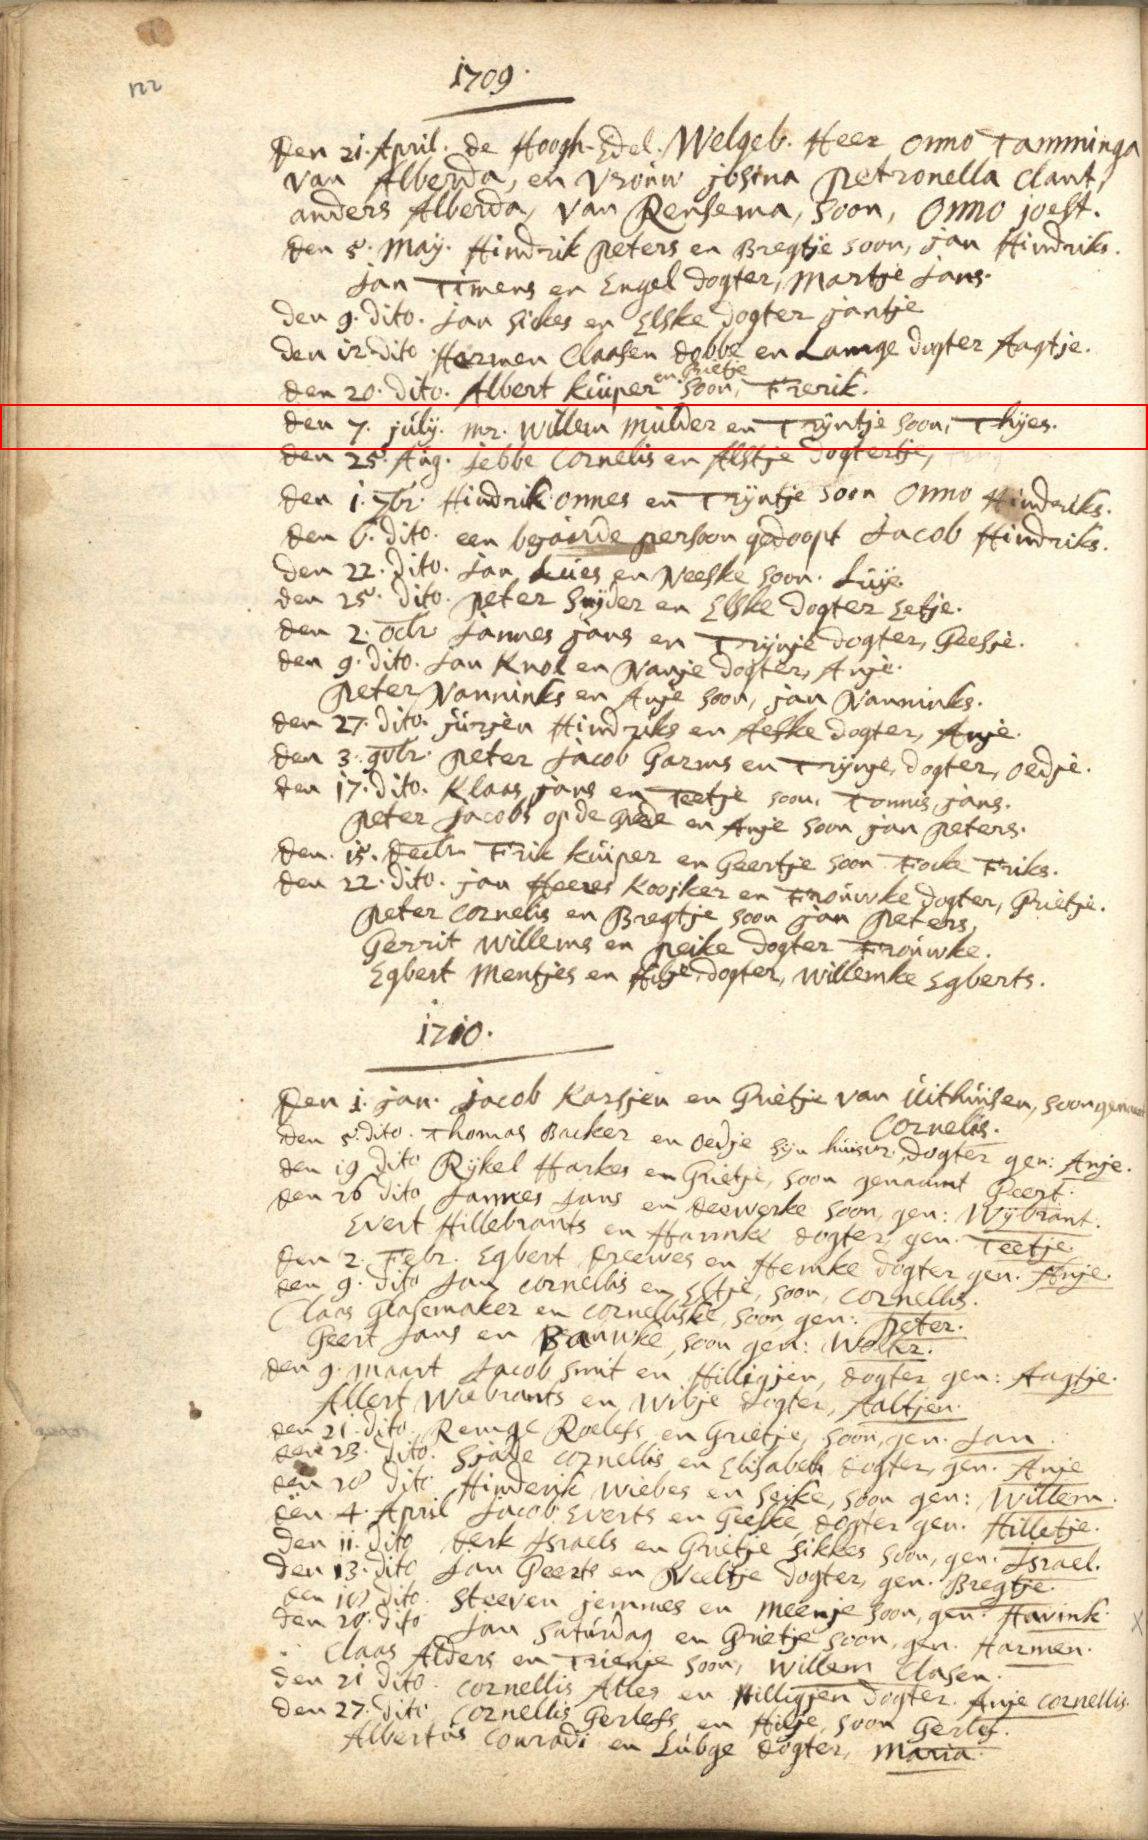 122
1709.
Den 21. April. de Hoogh-Edel. Welgeb. Heer Onno Tamminga
van Alberda, en Vrouw josina Petronella Clant,
anders Alberda, van Rensema, Soon, Onno joest.
den 5. Maÿ. Hindrik Peters en Bregtje soon, jan Hindriks.
Jan Timens en Engel dogter, Martje Jans.
Den 9. dito. Jan Sickes en Elske dogter jantje
den 12 dito Harmen Claasen dobbe en Lamge dogter Aagtje.
en Grietje
den 20. dito. Albert Kuiper soon, Frerik.
den 7. júlÿ. mr. Willem Mulder en Trÿntje soon, Thÿes.
den 25. Aúg. Jebbe Cornelis en Alstje dogtertje,
den 1. 7br. Hindrik Onnes en Trÿntje soon Onno Hinderiks.
den 6. dito. een bejairde persoon gedoopt Jacob Hindriks.
den 22. dito. Jan Luies en Neeske soon. Luÿe.
den 25. dito. Peter Snÿder en Elske dogter Eetje.
den 2. Octr. Jannes jans en Trÿnje dogter, Geesje.
den 9. dito. Jan Knol en Nanje dogter, Anje.
Peter Nanninks en Anje soon, jan Nanninks.
den 27. dito. jurjen Hindriks en Aefke dogter, Anje.
den 3. 9vbr. Peter Jacob Garms en Trÿnje, dogter, Oedje.
den 17. dito. Klaas jans en Teetje soon, Tonnis jans.
Peter Jacobs op de en Anje soon jan Peters.
den. 15. decbr. Frik kúiper en Geertje soon Focke Friks.
den 22. dito. jan Heeres Koojker en Froúwke dogter, Grietje.
Peter Cornelis en Bregtje soon jan Peters,
Gerrit Willems en Peike dogter Froúwke.
Egbert Mentjes en Hilje dogter, Willemke Egberts.
1710.
Den 1. jan. Jacob Karsjen en Grietje van Úithúisen, soon genaamt
Cornelis.
den 5. dito. Thomas Backer en Oedje sijn húisvr. dogter gen: Anje.
den 19 dito Rÿkel Harkes en Grietje, soon genaamt Geert.
den 26 dito Jannes Jans en deewerke soon, gen: Wÿbrant.
Evert Hillebrants en Harmke dogter gen. Teetje
den 2. Febr. Egbert Dreewes en Hemke dogter gen. Anje.
den 9. dito Jan Cornellis en Eltje, soon, Cornellis.
Claas Glasemaker en Cornelliske, soon gen: Peter.
Geert Jans en Bauwke, soon gen: Wolter.
den 9. maart Jacob Smit en Hilligjen, dogter gen: Aagtje.
Allert Wiebrants en Wibje dogter, Aaltjen.
den 21. dito. Remge Roelefs en Grietje, soon, gen. Jan.
den 23. dito. Sjabe Cornellis en Elisabeth dogter, gen. Anje
den 28 dito Hinderik Wiebes en Seike, soon gen: Willem.
den 4. April Jacob Everts en Geeske, dogter gen. Hilletje.
Den 11. dito Derk Israels en Grietje Sikkes soon, gen. Israel.
den 13. dito Jan Geerts en Neeltje dogter, gen. Bregtje.
den 18 dito. Steeven jemmes en Meenje soon, gen. Havink.
den 20. dito Jan Satúrdag en Grietje soon, gen. Harmen.
Claas Alders en Trienje soon, Willem Clasen.
den 21 dito. Cornellis Alles en Hilligjen dogter. Anje Cornellis.
den 27. dito Cornellis Gerlefs en Hilje, soon Gerlef.
Albertús Conradi en Lúbge dogter, Maria.